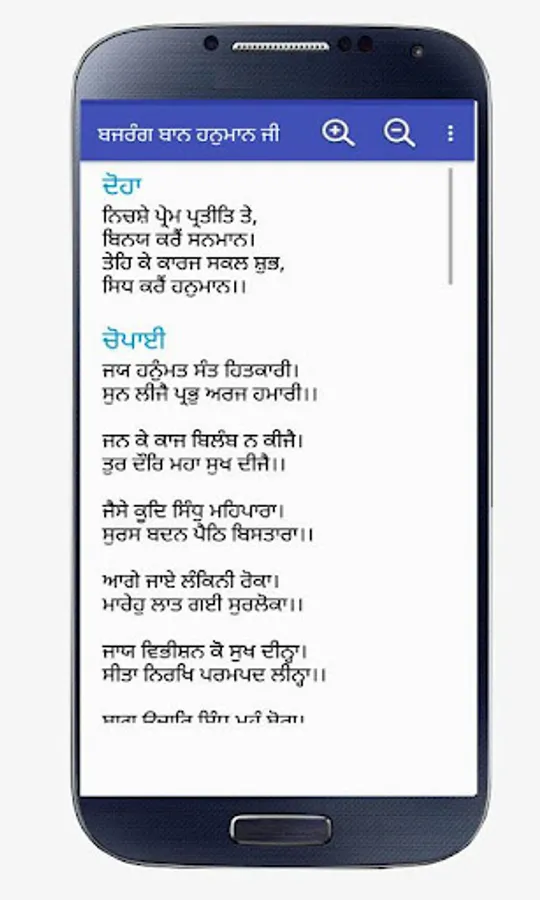 ਬਜਰੰਗ ਬਾਨ ਹਨੁਮਾਨ ਜੀ
ਦੋਹਾ
ਨਿਚਸ਼ੇ ਪ੍ਰੇਮ ਪ੍ਰਤੀਤਿ ਤੇ,
ਬਿਨਯ ਕਰੈਂ ਸਨਮਾਨ।
ਤੇਹਿ ਕੇ ਕਾਰਜ ਸਕਲ ਸ਼ੁਭ,
ਸਿਧ ਕਰੈਂ ਹਨੁਮਾਨ।।
ਚੋਪਾਈ
ਜਯ ਹਨੁੰਮਤ ਸੰਤ ਹਿਤਕਾਰੀ।
ਸੁਨ ਲੀਜੈ ਪ੍ਰਭੁ ਅਰਜ ਹਮਾਰੀ।।
ਜਨ ਕੇ ਕਾਜ ਬਿਲੰਬ ਨ ਕੀਜੈ।
ਤੁਰ ਦੌਰਿ ਮਹਾ ਸੁਖ ਦੀਜੈ।।
ਜੈਸੇ ਕੂਦਿ ਸਿੰਧੁ ਮਹਿਪਾਰਾ।
ਸੁਰਸ ਬਦਨ ਪੈਠਿ ਬਿਸਤਾਰਾ।।
ਆਗੇ ਜਾਏ ਲੰਕਿਨੀ ਰੋਕਾ।
ਮਾਰੇਹੁ ਲਾਤ ਗਈ ਸੁਰਲੋਕਾ।।
ਜਾਯ ਵਿਭੀਸ਼ਨ ਕੋ ਸੁਖ ਦੀਨ੍ਹਾ।
ਸੀਤਾ ਨਿਰਖਿ ਪਰਮਪਦ ਲੀਨ੍ਹਾ।।